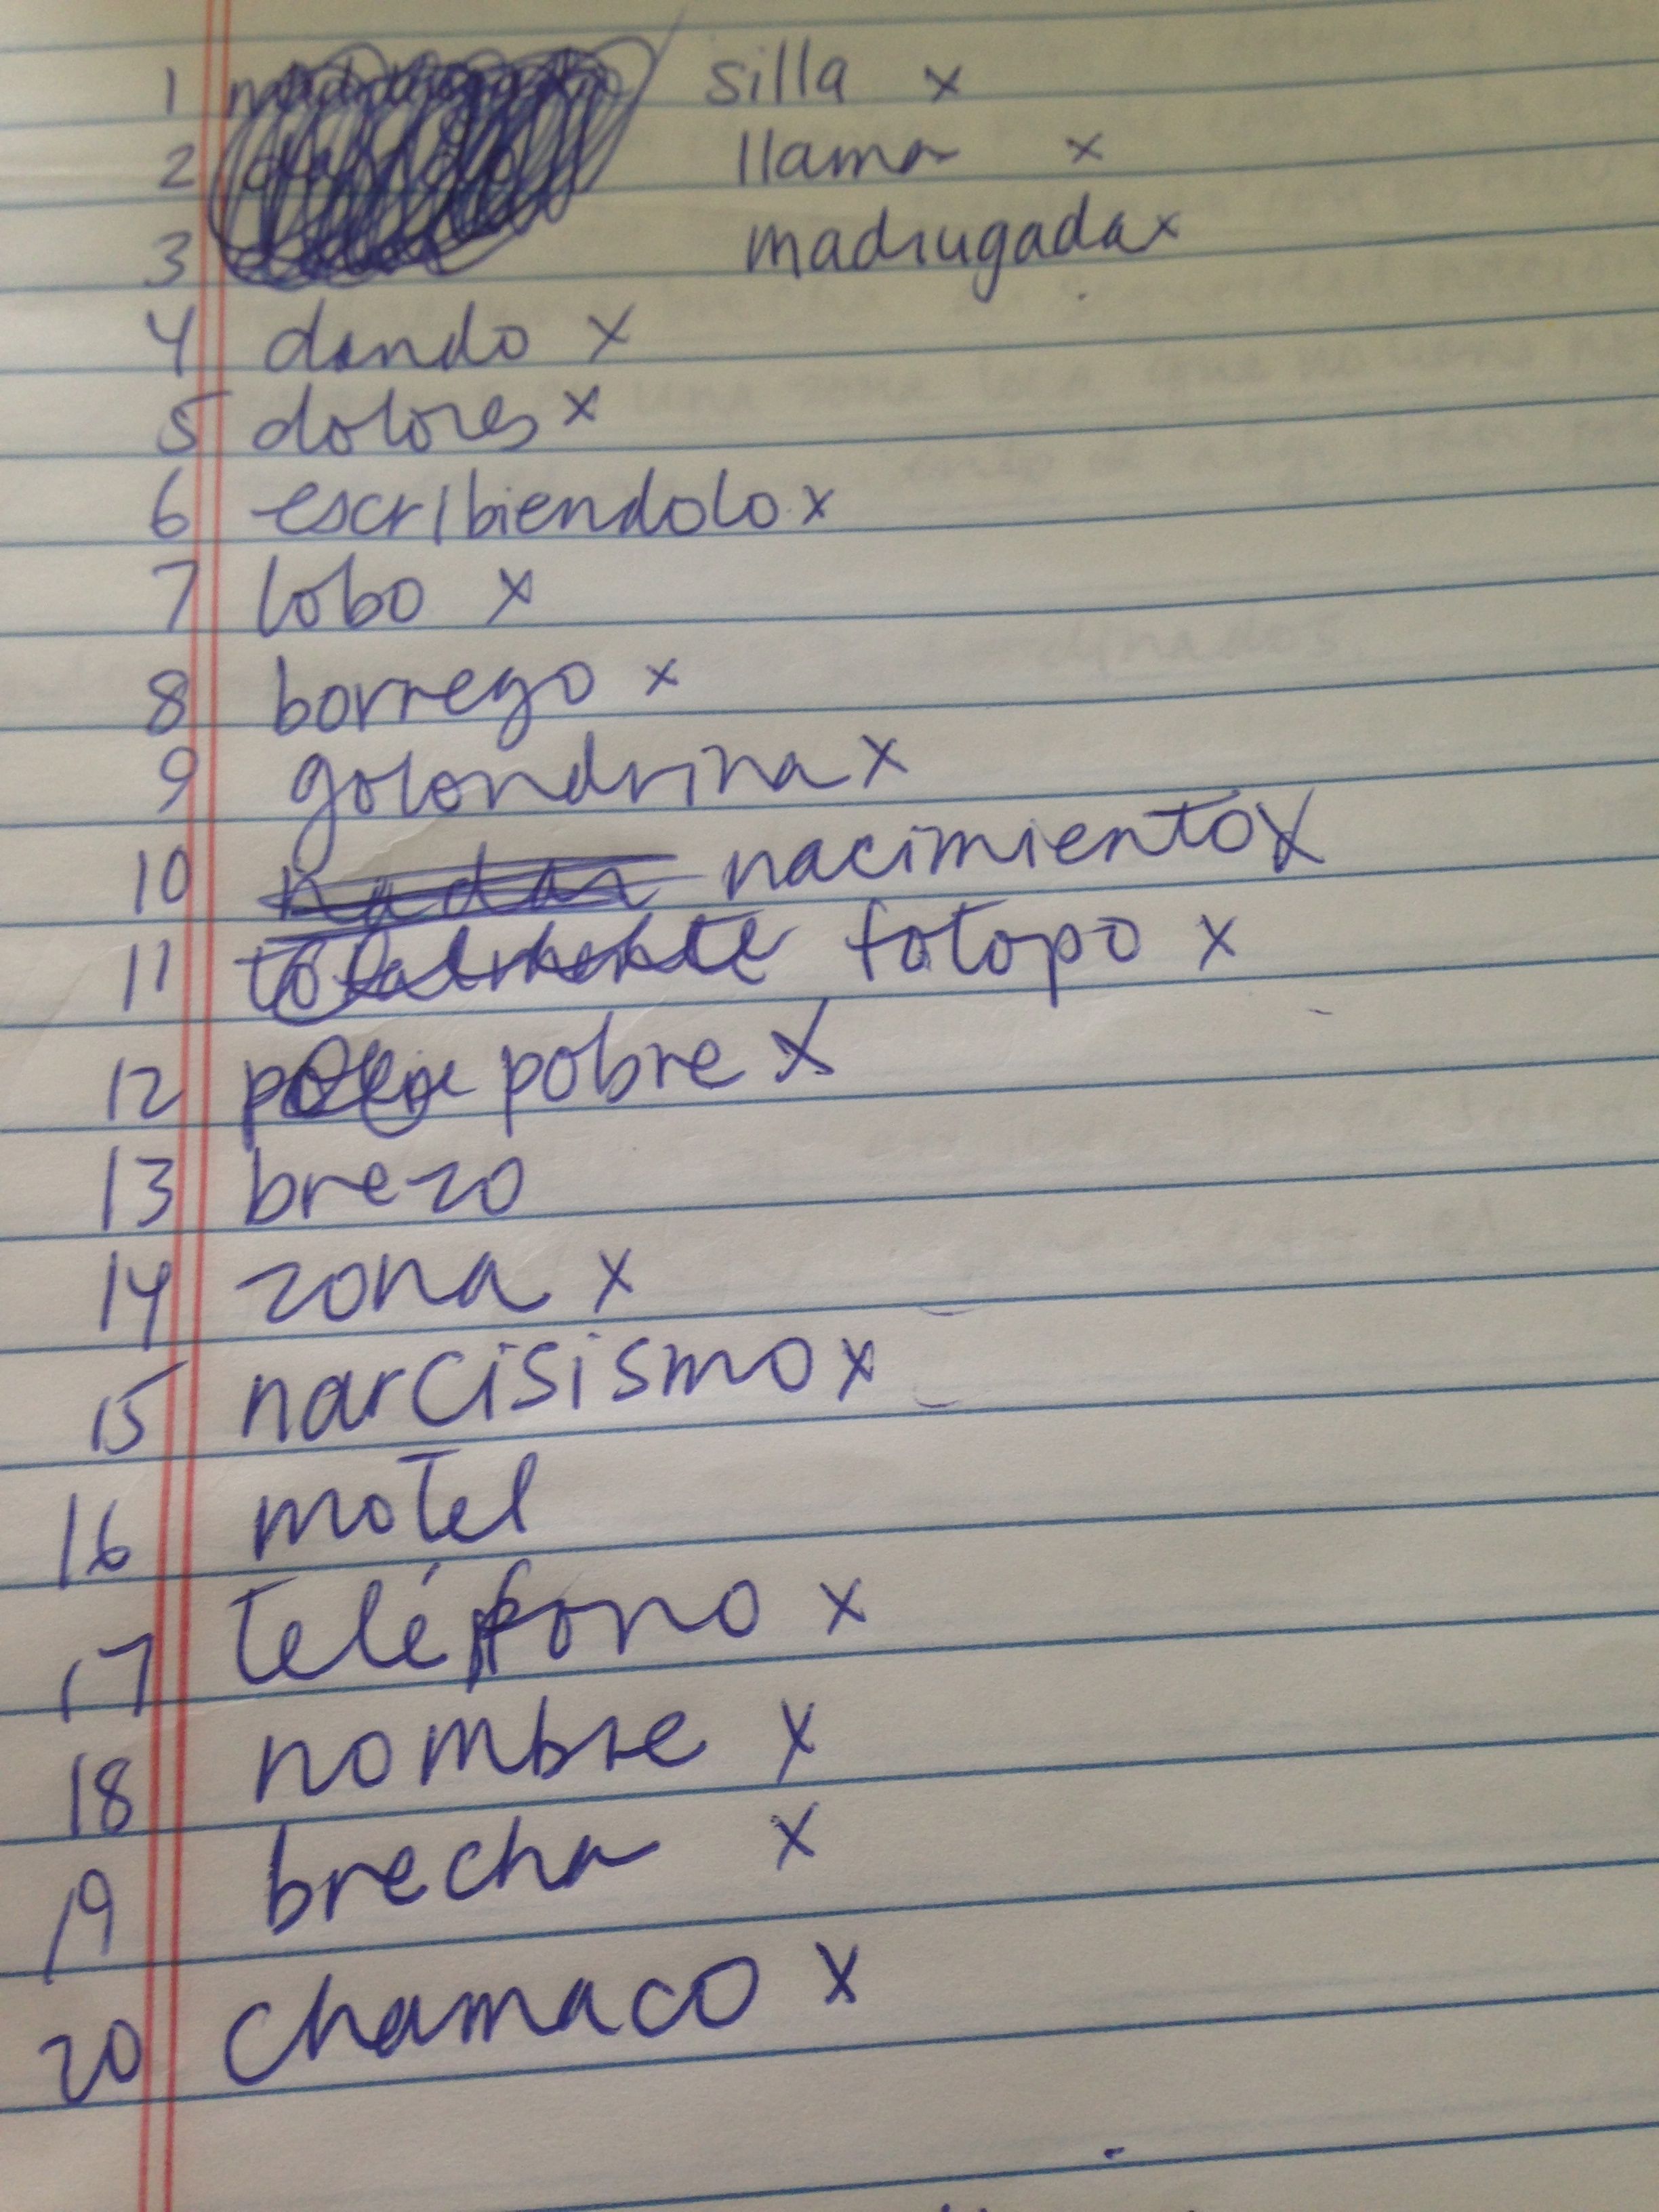 1 silla x
2 llama x
3 madrugada x
4 dando x
5 dolores x
6 escribiendolo x
7 lobo x
8 borrego x
9 golondrina x
10 nadar nacimiento x
11 totalmente totopo x
12 pobre x
13 brezo
14 zona x
15 narcisismo x
16 motel
17 teléfono x
18 nombre x
19 brecha x
20 chamaco x